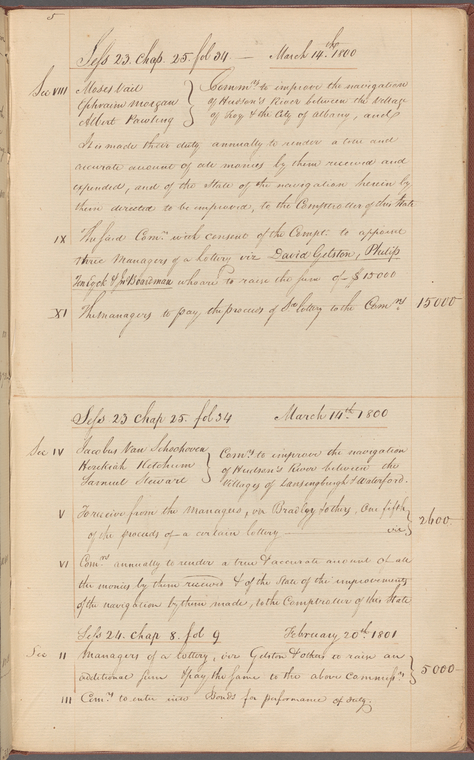 5
Sess 23. Chap. 25. fol 34 — March 14th 1800
Sec VIII Moses Vail
Ephraim Morgan
Albert Pawling
Commrs to improve the navigation
of Hudson's River between the Village
of Troy & the City of Albany, and
It is made their duty annually to render a true and
accurate account of all monies by them received and
expended, and of the State of the navigation herein by
them directed to be improved, to the Comptroller of this State
IX The said Comrs with consent of the Compt. to appoint
three Managers of a Lottery viz David Gelston, Philip
Ten Eyck & Boardman who are to raise the sum of $15000
XI The managers to pay the proceeds of sd lottery to the Comrs 15000
Sess 23 Chap 25. fol 34 March 14th 1800
Sec IV Jacobus Van Schoohoven
Hezekiah Ketchum
Samuel Steward
Comrs to improve the navigation
of Hudson's River between the
Villages of Lansingburgh & Waterford.
V To receive from the Managers, viz Bradley & others, One fifth
of the proceeds of a certain lottery viz 2600
VI Comrs annually to render a true & accurate amount of all
the monies by them received & of the State of the improvements
of the navigation by them made, to the Comptroller of this State
Sess 24. Chap 8. fol 9 February 20th 1801
Sec II Managers of a lottery, viz Gelston & others to raise an
additional sum & pay the same to the above Commissrs 5000
III Comrs to enter into Bonds for performance of duty.